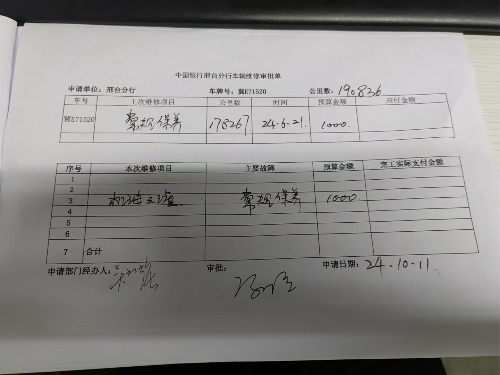 中国银行邢台分行车辆维修审批单
申请单位：邢台分行 车牌号：冀E71520 公里数：190836
车号 上次维修项目 公里数 时间 预算金额 应付金额
冀E71520 常规保养 178267 24-6-21. 1000
序号 本次维修项目 主要故障 预算金额 完工实际支付金额
1
2
3 常规保养 1000
4
5
6
7 合计
申请部门经办人： 审批： 申请日期：24.10.11